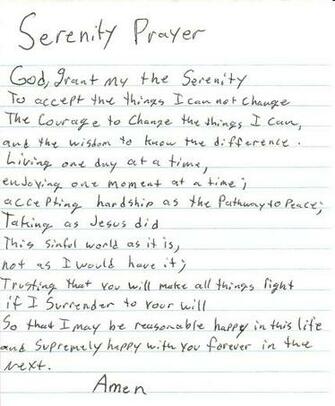 Serenity Prayer
God, grant my the Serenity
To accept the things I can not change
The Courage to Change the things I Can,
and the wisdom to know the difference.
Living one day at a time,
enjoying one moment at a time;
accepting hardship as the Pathway to Peace;
Taking as Jesus did
This sinful world as it is,
not as I would have it;
Trusting that you will make all things right
if I Surrender to your will
So that I may be reasonable happy in this life
and Supremely happy with you forever in the
next.
Amen